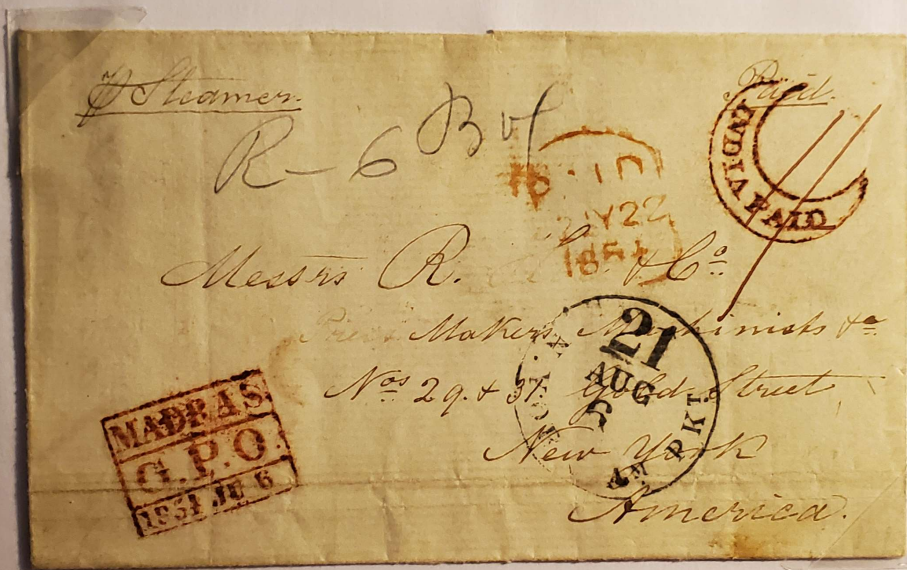 p Steamer
Paid
R - 6
INDIA PAID
PAID
22 JY 22
1854
Messrs R. & Co
Makers Machinists &c
Nos 29 & 31 Gold Street
New York
America.
21
AUG
AM PKT.
MADRAS.
G.P.O.
1854 JU 6